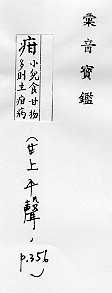 彙音寶鑑
疳 小兒食甘物
多則生疳病
(甘上平聲,
p.356)